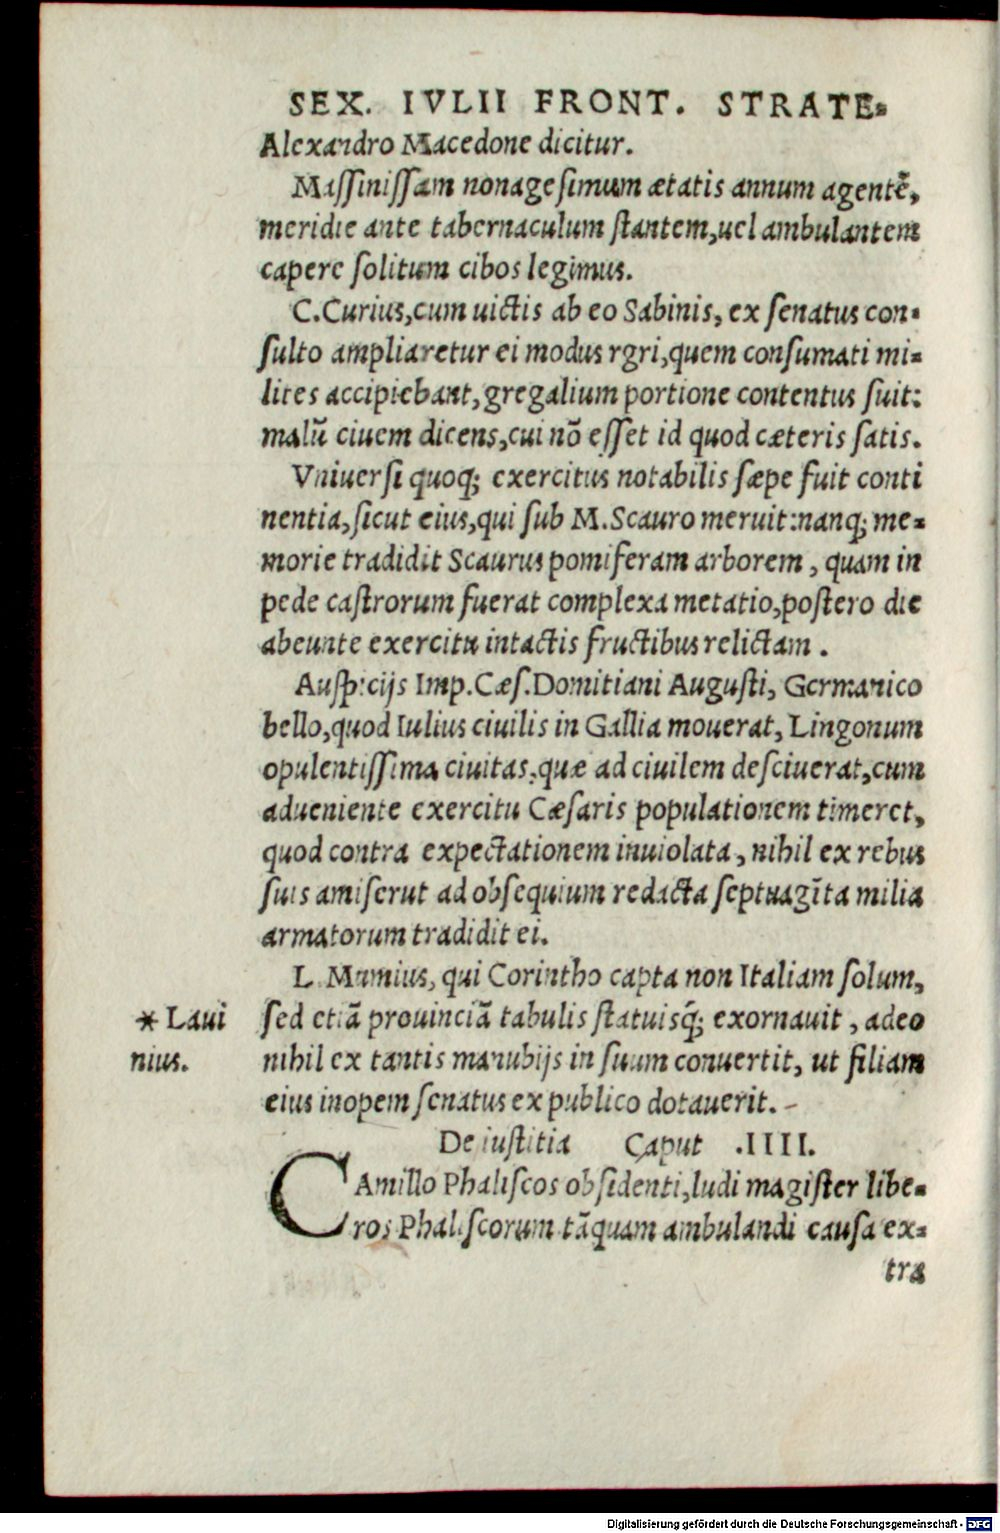 SEX. IVLII FRONT. STRATE-
Alexandro Macedone dicitur.
Massinissam nonagesimum ætatis annum agentē,
meridie ante tabernaculum stantem,uel ambulantem
capere solitum cibos legimus.
C.Curius,cum uictis ab eo Sabinis, ex senatus con-
sulto ampliaretur ei modus rgri,quem consumati mi-
lites accipiebant,gregalium portione contentus fuit:
malū ciuem dicens,cui nō esset id quod cæteris satis.
Vniuersi quoq; exercitus notabilis sæpe fuit conti
nentia,sicut eius,qui sub M.Scauro meruit:nanq; me-
morie tradidit Scaurus pomiferam arborem, quam in
pede castrorum fuerat complexa metatio,postero die
abeunte exercitu intactis fructibus relictam.
Auspicijs Imp.Cæs.Domitiani Augusti, Germanico
bello,quod Iulius ciuilis in Gallia mouerat, Lingonum
opulentissima ciuitas,quæ ad ciuilem desciuerat,cum
adueniente exercitu Cæsaris populationem timeret,
quod contra expectationem inuiolata, nihil ex rebus
suis amiserut ad obsequium redacta septuagīta milia
armatorum tradidit ei.
L. Mumius, qui Corintho capta non Italiam solum,
* Laui
nius.
sed etiā prouinciā tabulis statuisq́; exornauit, adeo
nihil ex tantis manubijs in suum conuertit, ut filiam
eius inopem senatus ex publico dotauerit. -
De iustitia Caput .IIII.
CAmillo Phaliscos obsidenti,ludi magister libe-
ros Phaliscorum tāquam ambulandi causa ex-
tra
Digitalisierung gefördert durch die Deutsche Forschungsgemeinschaft - DFG